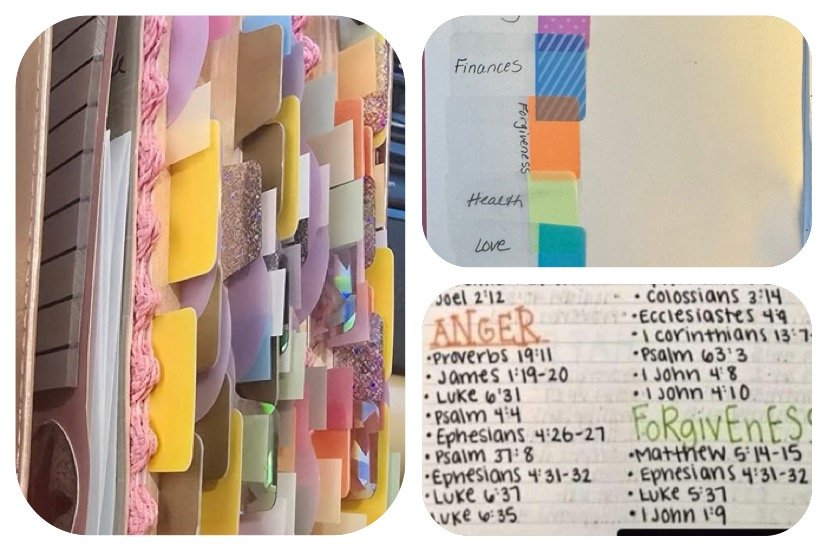 Finances
Forgiveness
Health
Love
Joel 2:12
ANGER
• Proverbs 19:11
• James 1:19-20
• Luke 6:31
• Psalm 4:4
• Ephesians 4:26-27
• Psalm 37:8
• Ephesians 4:31-32
• Luke 6:37
Luke 6:35
• Colossians 3:14
• Ecclesiastes 4:9
• 1 Corinthians 13:7-
• Psalm 63:3
• 1 John 4:8
• 1 John 4:10
FoRgivEnESS
• Matthew 5:14-15
• Ephesians 4:31-32
• Luke 5:37
• 1 John 1:9